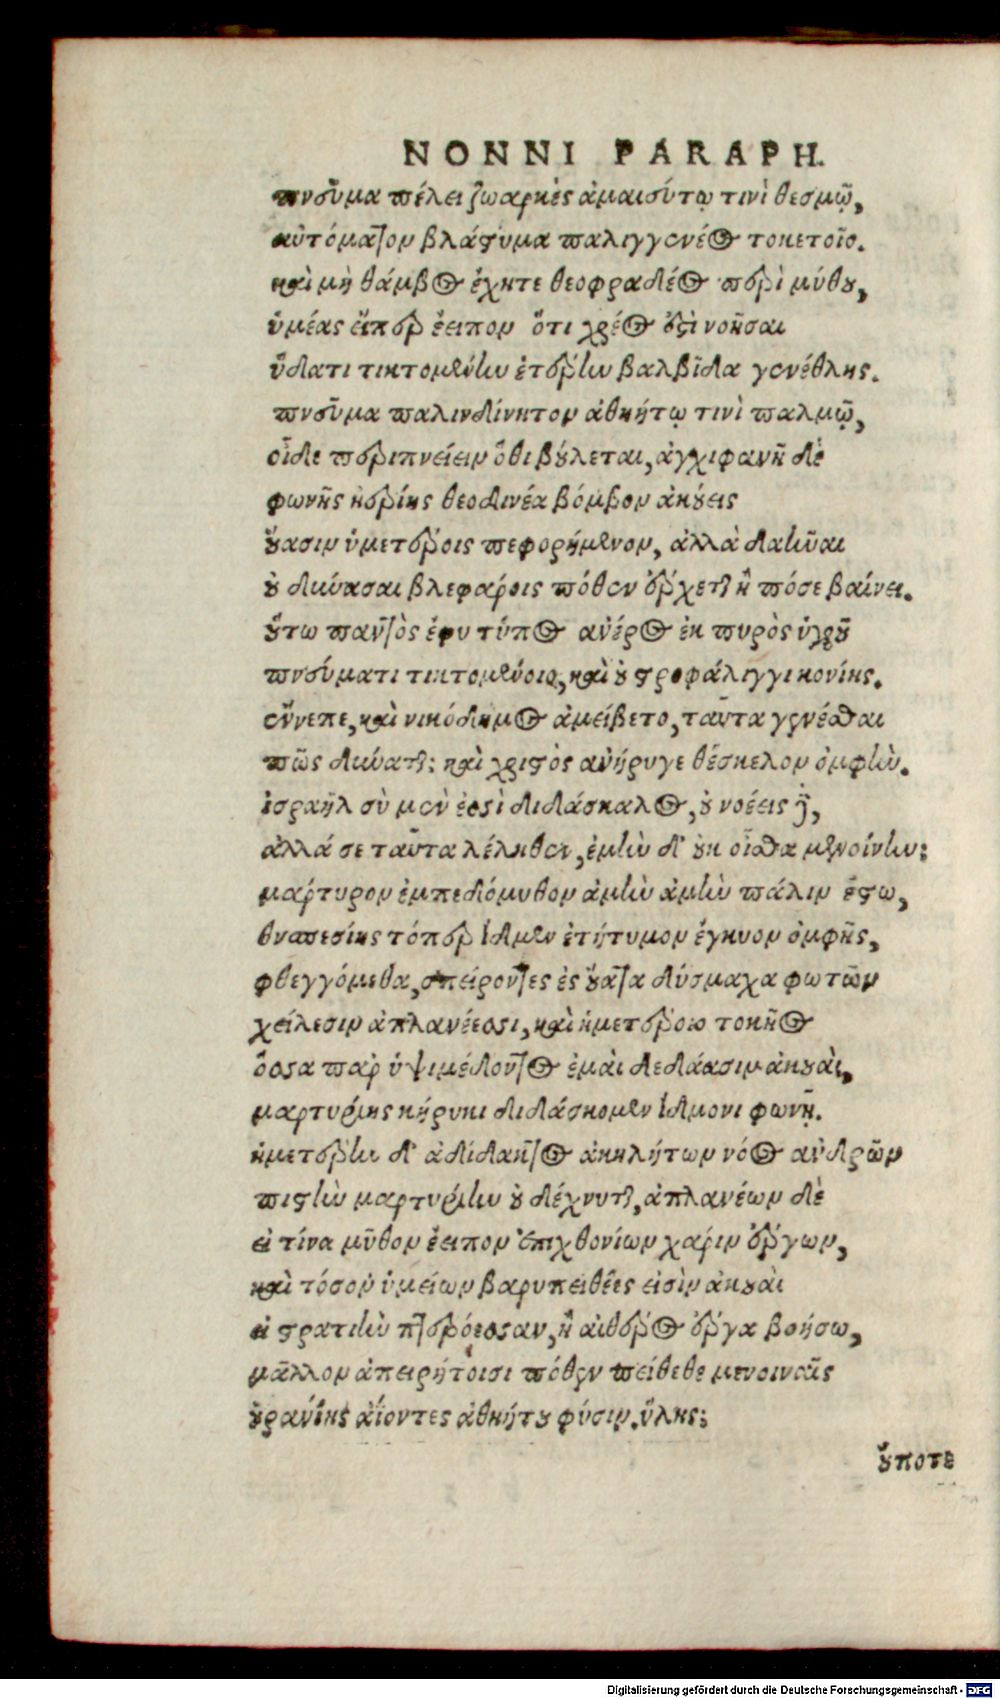 NONNI PARAPH.
πνεῦμα πέλει ζωαρκὲς ἀμαιεύτῳ τινὶ θεσμῷ,
αὐτόματον βλάστυμα παλιγγενέος τοκετοῖο.
καὶ μὴ θάμβος ἔχητε θεοφραδέος περὶ μύθου,
ὑμέας εἴπερ ἔειπον ὅτι χρέος ἐστὶ νοῆσαι
ὕδατι τικτομένην ἑτέρην βαλβῖδα γενέθλης.
πνεῦμα παλινδίνητον ἀθηήτῳ τινὶ παλμῷ,
οἶδε περιπνείειν ὅθι βούλεται, ἀγχιφανῆ δὲ
φωνῆς ἠερίης θεοδινέα βόμβον ἀκούεις
οὔασιν ὑμετέροις πεφορημένον, ἀλλὰ δαῆναι
οὐ δύνασαι βλεφάροις πόθεν ἔρχεται ἢ πόσε βαίνει.
οὕτω παντὸς ἔφυ τύπος ἀνέρος ἐκ πυρὸς ὑγροῦ
πνεύματι τικτομένοιο, καὶ οὐ στροφάλιγγι κονίης.
ἔννεπε, καὶ νικόδημος ἀμείβετο, ταῦτα γενέσθαι
πῶς δύναται; καὶ χριστὸς ἀνήρυγε θέσκελον ὀμφήν.
ἰσραὴλ σὺ μὲν ἐσσὶ διδάσκαλος, οὐ νοέεις δὲ,
ἀλλά σε ταῦτα λέληθεν, ἐμὴν δ' οὐκ οἶσθα μενοίνην;
μάρτυρον ἐμπεδόμυθον ἀμὴν ἀμὴν πάλιν ἔστω,
θυαπεσίης τόπερ ἴδμεν ἐτήτυμον ἔγκυον ὀμφῆς,
φθεγγόμεθα, σπείροντες ἐς οὔατα δύσμαχα φωτῶν
χείλεσιν ἀπλανέεσσι, καὶ ἡμετέροιο τοκῆος
ὅσσα παρ' ὑψιμέδοντος ἐμαὶ δεδάασιν ἀκουαὶ,
μαρτυρίης κήρυκι διδάσκομεν ἴδμονι φωνῇ.
ἡμετέρην δ' ἀδίδακτος ἀκηλήτων νόος ἀνδρῶν
πιστὴν μαρτυρίην οὐ δέχνυται, ἀπλανέων δὲ
εἰ τίνα μῦθον ἔειπον ἐπιχθονίων χάριν ἔργων,
καὶ τόσον ὑμείων βαρυπειθέες εἰσὶν ἀκουαὶ
εἰ στρατιὴν πτερόεσσαν, ἢ αἰθέρος ἔργα βοήσω,
μᾶλλον ἀπειρήτοισι πόθεν πείθεσθε μενοιναῖς
οὐρανίης ἀΐοντες ἀθηήτου φύσιν. ὕλης;
οὔποτε
Digitalisierung gefördert durch die Deutsche Forschungsgemeinschaft - DFG